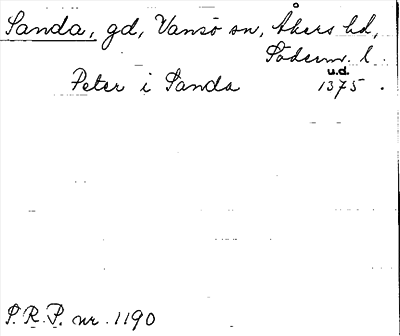 Sanda, gd, Vansö sn, Åkers hd,
Söderm. l.
u.d.
Peter i Sanda 1375.
P.R.P. nr. 1190